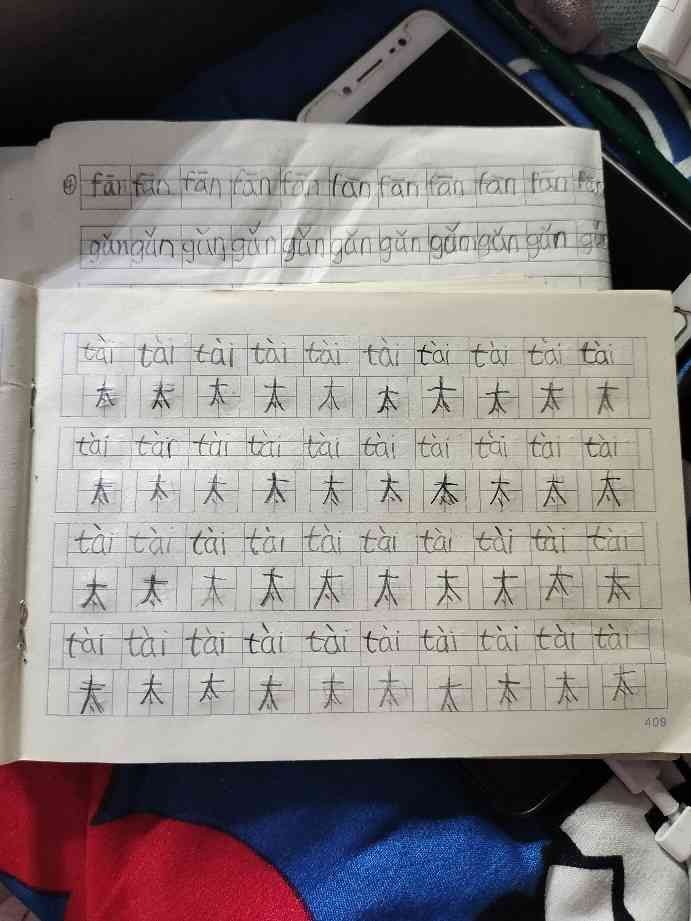 ④ fān fān fān fān fān fān fān fān fān fān fān
gǎn gǎn gǎn gǎn gǎn gǎn gǎn gǎn gǎn gǎn gǎn
tài tài tài tài tài tài tài tài tài tài
太 太 太 太 太 太 太 太 太 太
tài tài tài tài tài tài tài tài tài tài
太 太 太 太 太 太 太 太 太 太
tài tài tài tài tài tài tài tài tài tài
太 太 太 太 太 太 太 太 太 太
tài tài tài tài tài tài tài tài tài tài
太 太 太 太 太 太 太 太 太 太
409